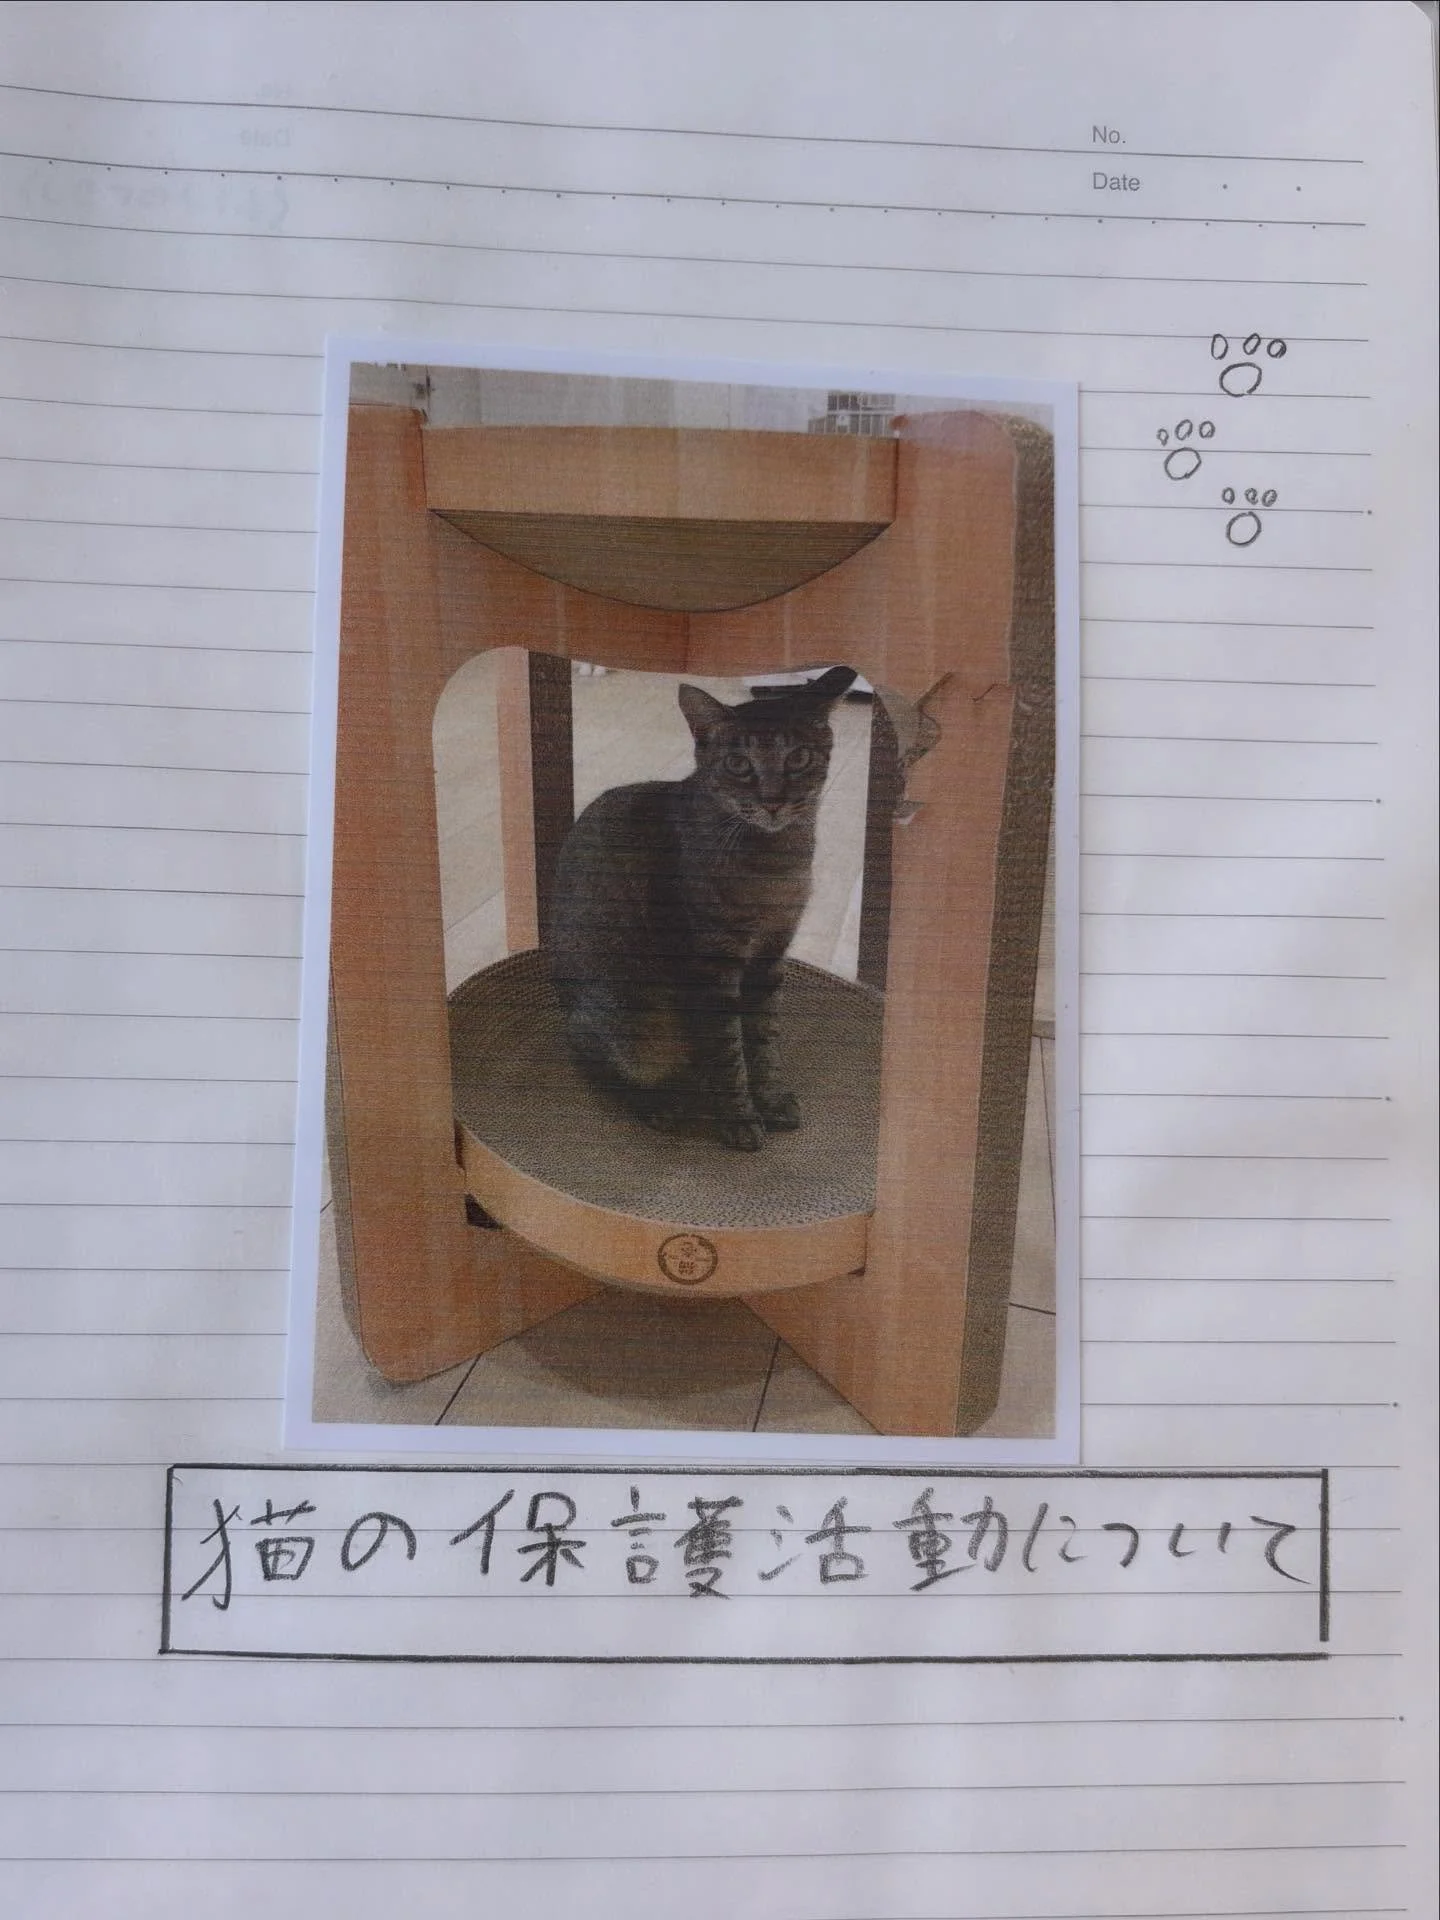 No.
Date
猫の保護活動について